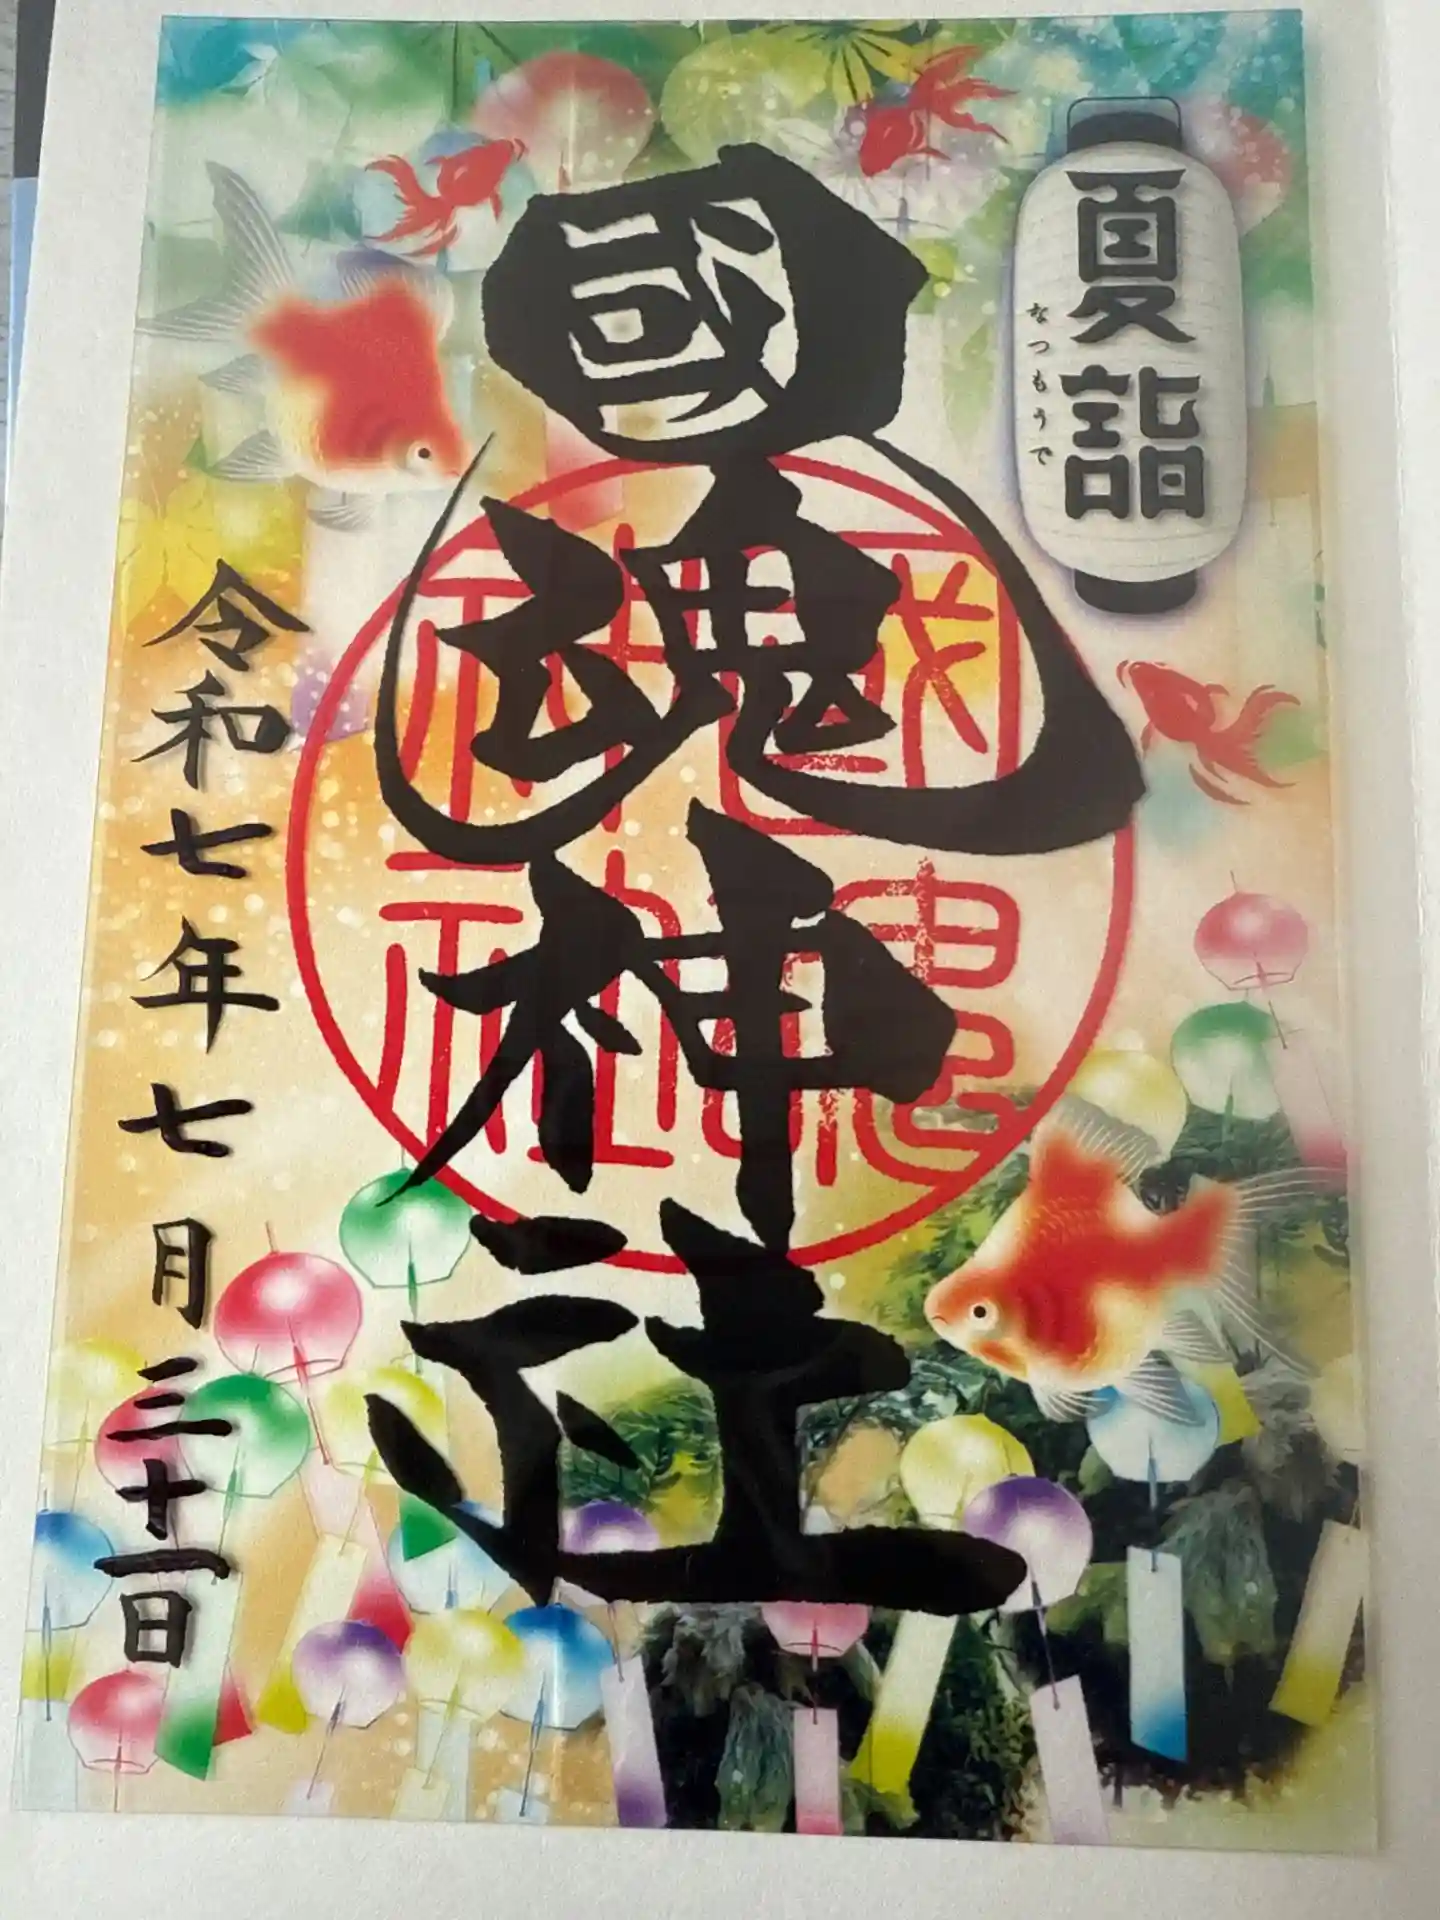 夏詣
なつもうで
國魂神社
令和七年七月三十一日